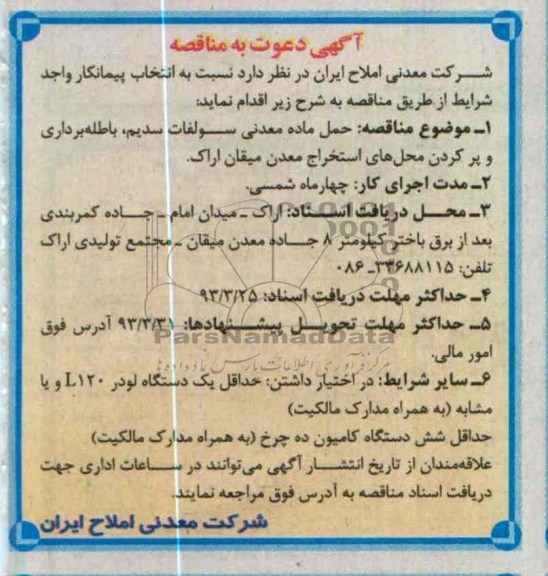 آگهی دعوت به مناقصه
شرکت معدنی املاح ایران در نظر دارد نسبت به انتخاب پیمانکار واجد
شرایط از طریق مناقصه به شرح زیر اقدام نماید:
۱ـ موضوع مناقصه: حمل ماده معدنی سولفات سدیم، باطله‌برداری
و پر کردن محل‌های استخراج معدن میقان اراک.
۲ـ مدت اجرای کار: چهارماه شمسی.
۳ـ محل دریافت اسناد: اراک ـ میدان امام ـ جاده کمربندی
بعد از برق باختر کیلومتر ۸ جاده معدن میقان ـ مجتمع تولیدی اراک
تلفن: ۳۳۶۸۸۱۱۵ـ ۰۸۶
۴ـ حداکثر مهلت دریافت اسناد: ۹۳/۳/۲۵
۵ـ حداکثر مهلت تحویل پیشنهادها: ۹۳/۳/۳۱ آدرس فوق
امور مالی.
ParsNamadData
۶ـ سایر شرایط: در اختیار داشتن: حداقل یک دستگاه لودر L۱۲۰ و یا
مشابه (به همراه مدارک مالکیت)
حداقل شش دستگاه کامیون ده چرخ (به همراه مدارک مالکیت)
علاقه‌مندان از تاریخ انتشار آگهی می‌توانند در ساعات اداری جهت
دریافت اسناد مناقصه به آدرس فوق مراجعه نمایند.
شرکت معدنی املاح ایران